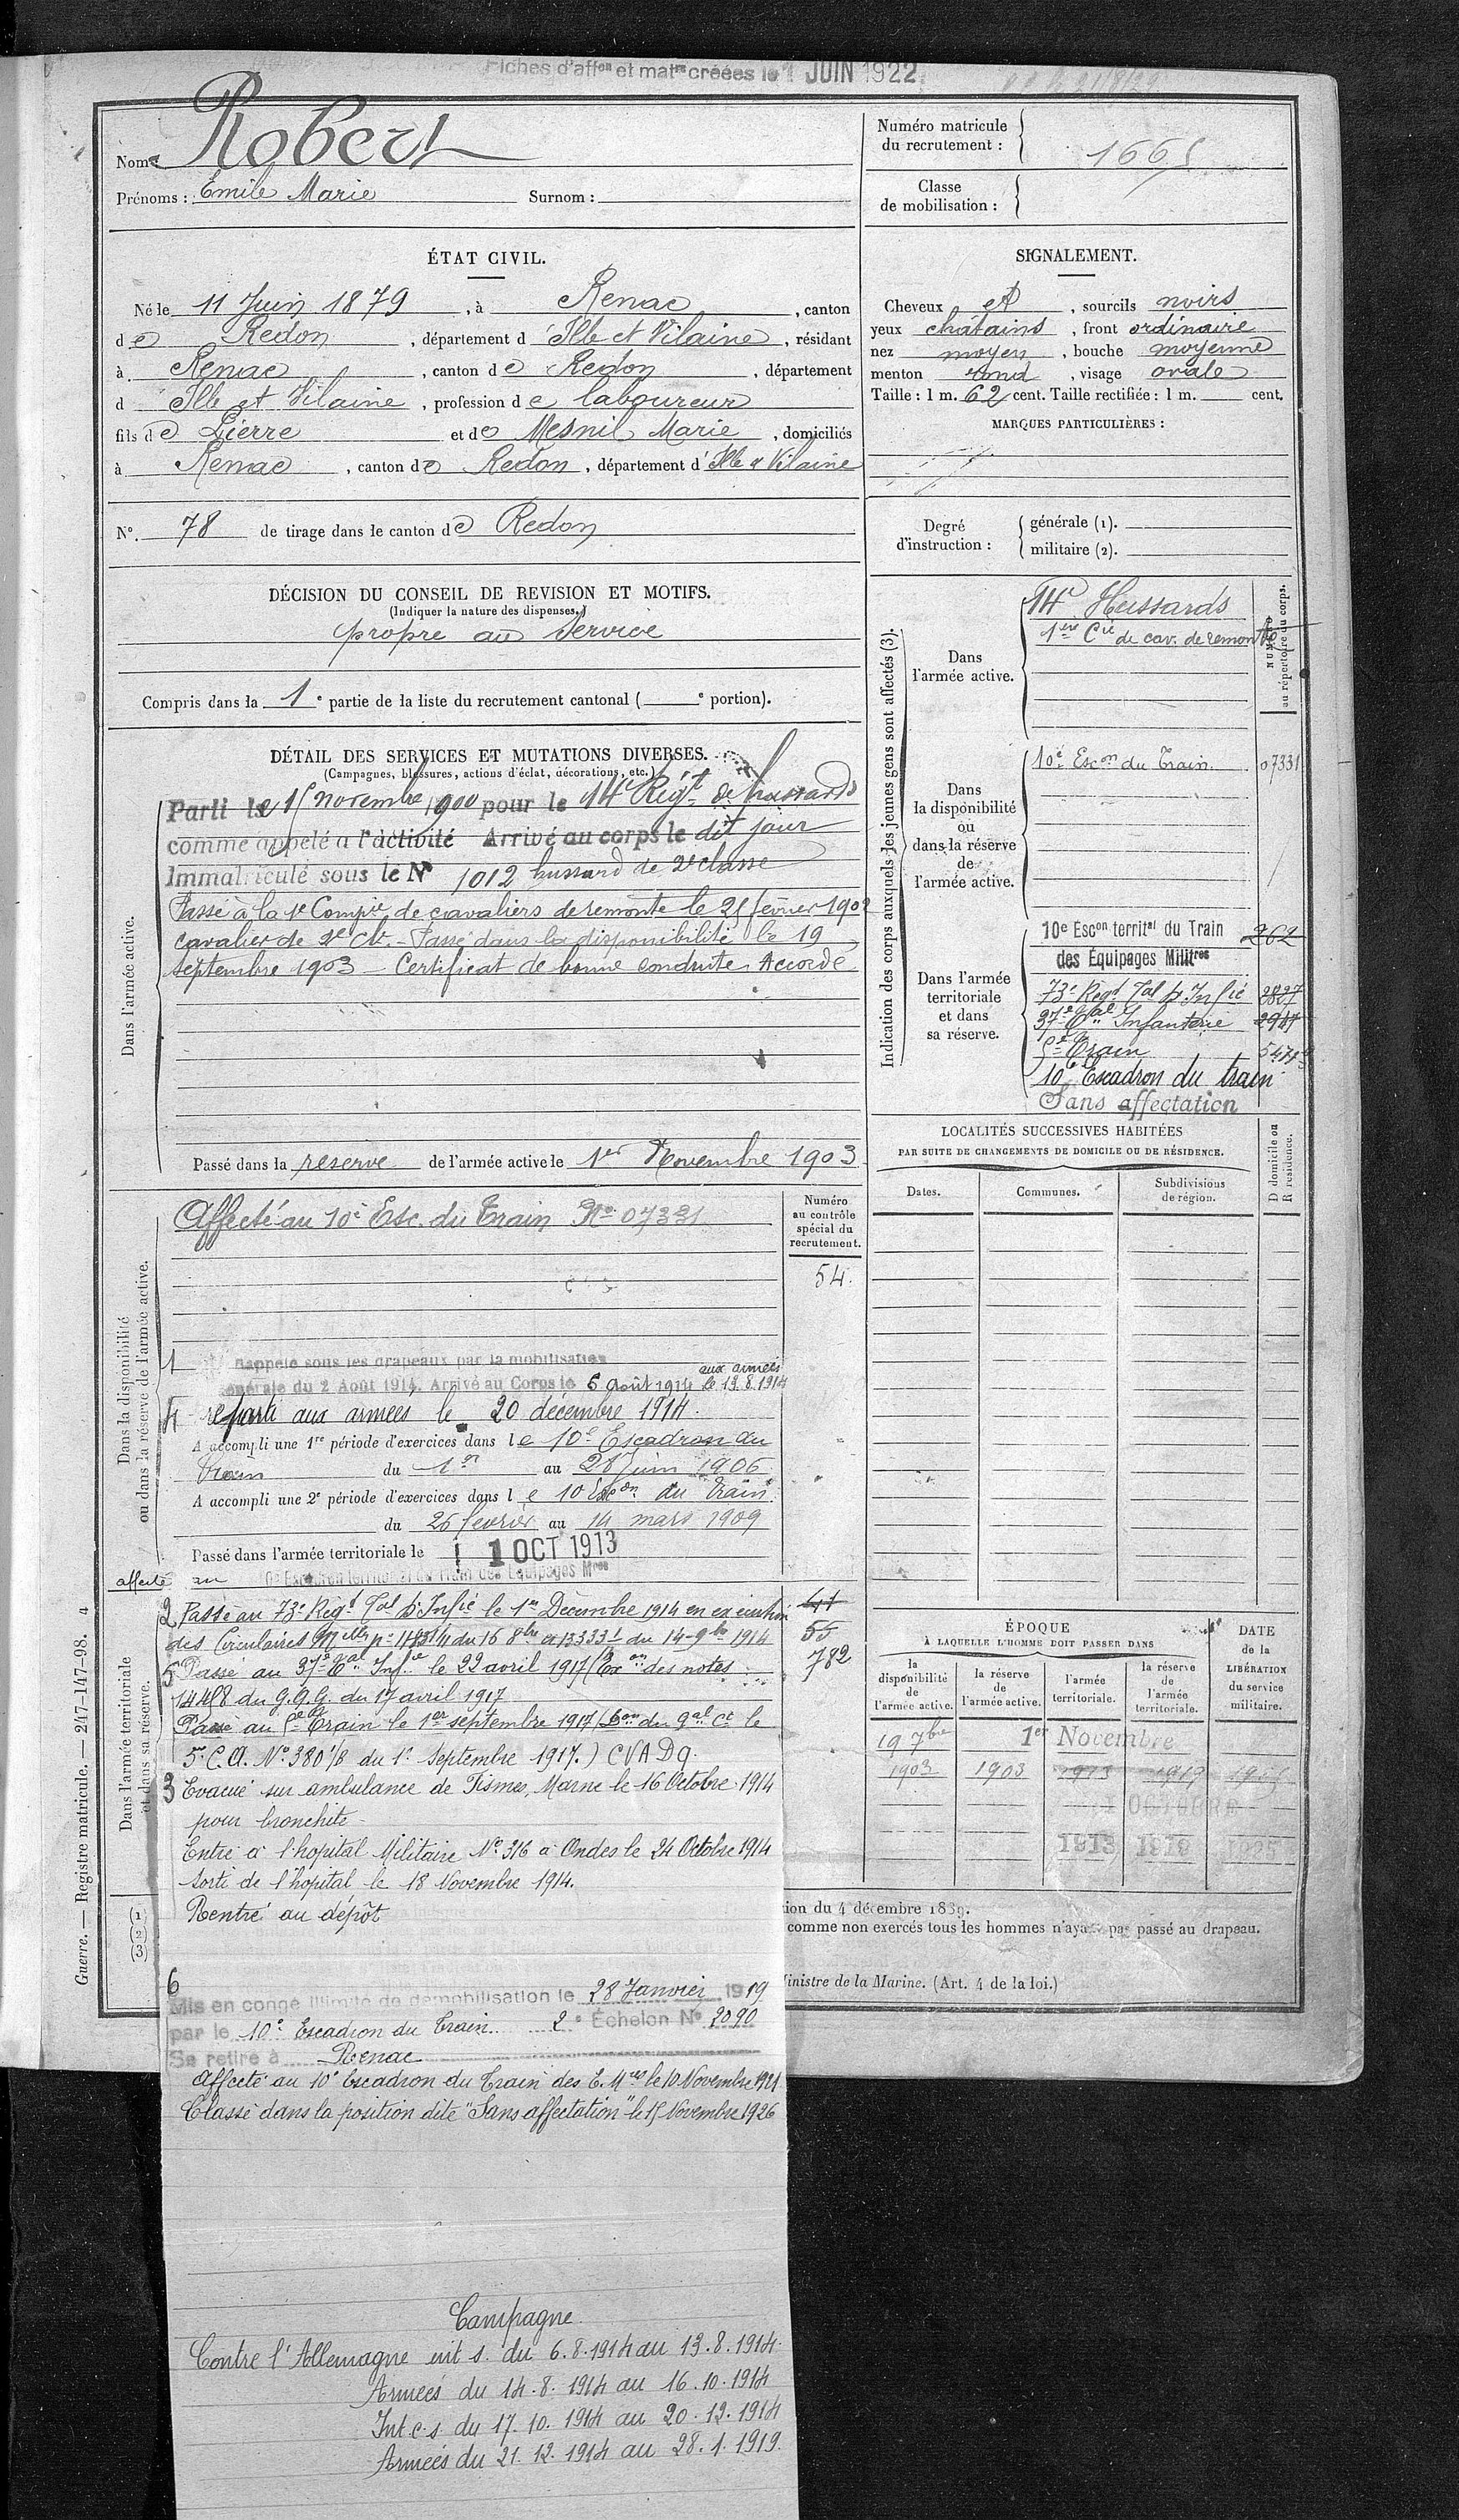 Fiches d'affon et matre créées le 1 JUIN 1922
Nom : Robert
Prénoms : Emile Marie Surnom :
Numéro matricule du recrutement : 1665
Classe de mobilisation :
ÉTAT CIVIL.
Né le 11 Juin 1879, à Renac, canton
de Redon, département d'Ille et Vilaine, résidant
à Renac, canton de Redon, département
d'Ille et Vilaine, profession de laboureur
fils de Pierre et de Mesnil Marie, domiciliés
à Renac, canton de Redon, département d'Ille & Vilaine
N° 78 de tirage dans le canton de Redon
SIGNALEMENT.
Cheveux et, sourcils noirs
yeux châtains, front ordinaire
nez moyen, bouche moyenne
menton rond, visage ovale
Taille : 1 m. 62 cent. Taille rectifiée : 1 m. cent.
MARQUES PARTICULIÈRES :
Degré d'instruction : générale (1).
militaire (2).
DÉCISION DU CONSEIL DE REVISION ET MOTIFS.
(Indiquer la nature des dispenses.)
propre au service
Compris dans la 1e partie de la liste du recrutement cantonal ( e portion).
DÉTAIL DES SERVICES ET MUTATIONS DIVERSES.
(Campagnes, blessures, actions d'éclat, décorations, etc.)
Dans l'armée active.
Parti le 15 novembre 1900 pour le 14e Régt de hussards
comme appelé à l'activité Arrivé au corps le dit jour
Immatriculé sous le N° 1012 hussard de 2e classe
Passé à la 1e Compie de cavaliers de remonte le 25 février 1902
cavalier de 2e cl. - Passé dans la disponibilité le 19
septembre 1903 - Certificat de bonne conduite Accordé
Passé dans la réserve de l'armée active le 1er Novembre 1903
Dans la disponibilité ou dans la réserve de l'armée active.
Affecté au 10e Esc. du Train No 07331
Numéro au contrôle spécial du recrutement.
54.
1 Rappelé sous les drapeaux par la mobilisation
générale du 2 Août 1914. Arrivé au Corps le 6 Août 1914 aux armées le 13.8.1914
4 reparti aux armées le 20 décembre 1914.
A accompli une 1re période d'exercices dans le 10e Escadron du
Train du 1er au 28 Juin 1906
A accompli une 2e période d'exercices dans le 10 Escon du Train
du 26 février au 14 mars 1909
Passé dans l'armée territoriale le 1 OCT 1913
affecté au 10e Escadron territorial du Train des Equipages Mres
Dans l'armée territoriale et dans sa réserve.
2 Passé au 73e Régt Tal d'Infie le 1er Décembre 1914 en exécution
des Circulaires Mlles du 16 8bre et 13333 1 du 14-9bre 1914
41
55
782
5 Passé au 37e Tal Infie le 22 avril 1917 (Exon des notes
14458 du G.Q.G. du 17 avril 1917
Passé au 5e Train le 1er septembre 1917 (Don du Gal Ct le
5e C.A. No 380 1/B du 1er Septembre 1917.) CVADq.
3 Evacué sur ambulance de Fismes, Marne le 16 Octobre 1914
pour bronchite
Entré à l'hopital Militaire No 316 à Ondes le 24 Octobre 1914
sorti de l'hôpital le 18 Novembre 1914.
Rentré au dépôt
6
Mis en congé illimité de démobilisation le 28 Janvier 1919
par le 10e Escadron du Train. 2e Échelon No 2090
Se retire à Renac
Affecté au 10e Escadron du Train des E. Mres le 10 Novembre 1921
Classé dans la position dite "Sans affectation" le 15 Novembre 1926
Campagne
Contre l'Allemagne int s. du 6.8.1914 au 13.8.1914.
Armées du 14.8.1914 au 16.10.1914
Int c.s. du 17.10.1914 au 20.12.1914
Armées du 21.12.1914 au 28.1.1919.
Indication des corps auxquels les jeunes gens sont affectés (3).
NUMÉRO au répertoire du corps.
Dans l'armée active.
14e Hussards
1ère Cie de cav. de remonte
Dans la disponibilité ou dans la réserve de l'armée active.
10e Escon du Train. 07331
Dans l'armée territoriale et dans sa réserve.
10e Escon territal du Train des Équipages Militres 262
73e Régt Tal d'Infie 3827
37e Tal Infanterie 2917
5e Train
10e Escadron du train
Sans affectation
LOCALITÉS SUCCESSIVES HABITÉES
PAR SUITE DE CHANGEMENTS DE DOMICILE OU DE RÉSIDENCE.
Dates. Communes. Subdivisions de région. D domicile ou R résidence.
ÉPOQUE
À LAQUELLE L'HOMME DOIT PASSER DANS
la disponibilité de l'armée active. la réserve de l'armée active. l'armée territoriale. la réserve de l'armée territoriale. DATE de la LIBÉRATION du service militaire.
19 7bre 1er Novembre
1903 1903 1913 1919
1 OCTOBRE
1913 1919 1925
Guerre. — Registre matricule. — 247-147-98. 4
(1)
(2)
(3)
tion du 4 décembre 1889.
comme non exercés tous les hommes n'ayant pas passé au drapeau.
Ministre de la Marine. (Art. 4 de la loi.)